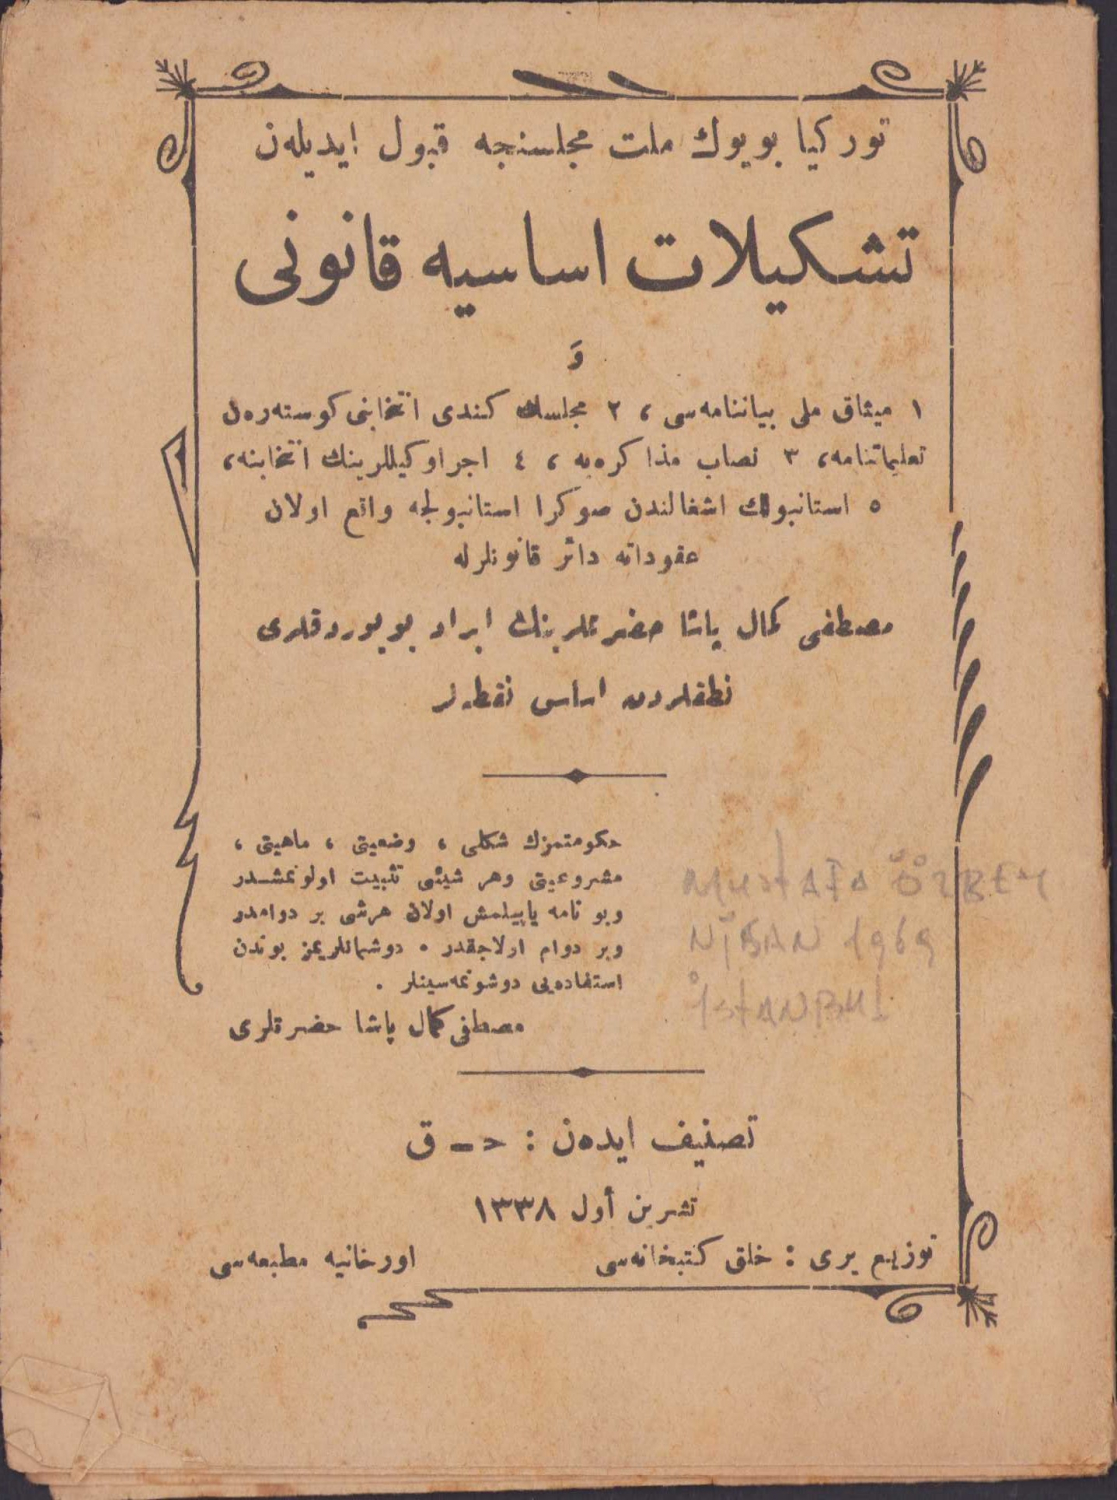 توركیا بویوك ملت مجلسنجه قبول ایدیله‌ن
تشكیلات اساسیه قانونی
وَ
١ میثاق ملی بیاننامه‌سی ، ٢ مجلسك كندی انتخابنی كوستره‌ن
تعلیماتنامه، ٣ نصاب مذاكره‌یه ، ٤ اجرا وكیللرینك انتخابنه،
٥ استانبولك اشغالندن صوكرا استانبولجه واقع اولان
عقوداته دائر قانونلرله
مصطفی كمال پاشا حضرتلرینك ایراد بویوردقلری
نطقلردن اساسی نقطه‌لر
حكومتمزك شكلی ، وضعیتی ، ماهیتی ،
مشروعیتی وهر شیئی تثبیت اولونمشدر
وبو نامه یاپیلمش اولان هرشی بر دوامدر
وبر دوام اولاجقدر . دوشمانلریمز بوندن
استفاده‌یی دوشونمه‌سینلر .
مصطفی كمال پاشا حضرتلری
MUSTAFA ÖZBEY
NİSAN 1969
İSTANBUL
تصنیف ایده‌ن : ح ـ ق
تشرین أول ١٣٣٨
توزیع یری : خلق كتبخانه‌سی
اورخانیه مطبعه‌سی